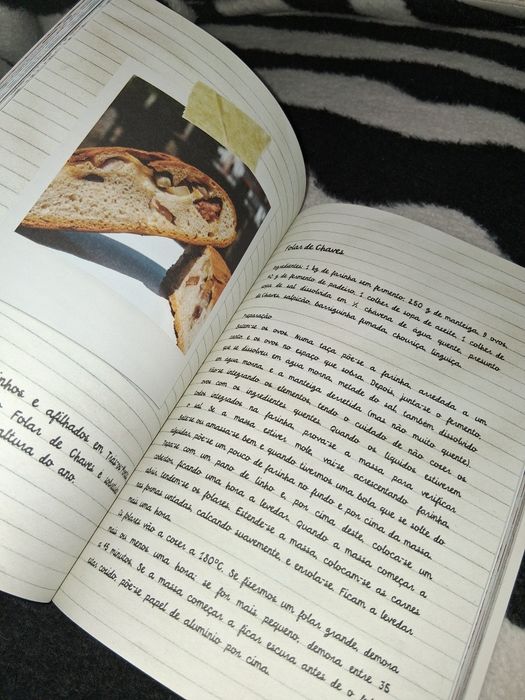 inhos e afilhados em Trás-os-
Folar de Chaves é
altura do ano.
Folar de Chaves
Ingredientes: 1 kg de farinha sem fermento; 250 g de manteiga; 9 ovos;
40 g de fermento de padeiro; 1 colher de sopa de azeite; 1 colher de
sopa de sal dissolvida em ½ chávena de água quente; presunto
de Chaves; salpicão; barriguinha fumada; chouriça; linguiça.
Preparação
Batem-se os ovos. Numa taça, põe-se a farinha, arredada a um
canto e os ovos no espaço que sobra. Depois, junta-se o fermento,
que se dissolveu em água morna, metade do sal, também dissolvido
em água morna, e a manteiga derretida (mas não muito quente).
Vão-se integrando os elementos, tendo o cuidado de não cozer os
ovos com os ingredientes quentes. Quando os líquidos estiverem
todos integrados na farinha, prova-se a massa para verificar
o sal. Se a massa estiver mole, vai-se acrescentando farinha.
Bate-se ou amassa-se bem e, quando tivermos uma bola que se solte do
alguidar, põe-se um pouco de farinha no fundo e por cima da massa.
Tapa-se com um pano de linho e, por cima deste, coloca-se um
cobertor, ficando uma hora a levedar. Quando a massa começar a
abrir, tendem-se os folares. Estende-se a massa, colocam-se as carnes
nas formas untadas, calcando suavemente, e enrola-se. Ficam a levedar
mais uma hora.
Os folares vão a cozer a 180ºC. Se fizermos um folar grande, demora
mais ou menos uma hora; se for mais pequeno, demora entre 35
a 45 minutos. Se a massa começar a ficar escura antes de o
estar cozido, põe-se papel de alumínio por cima.